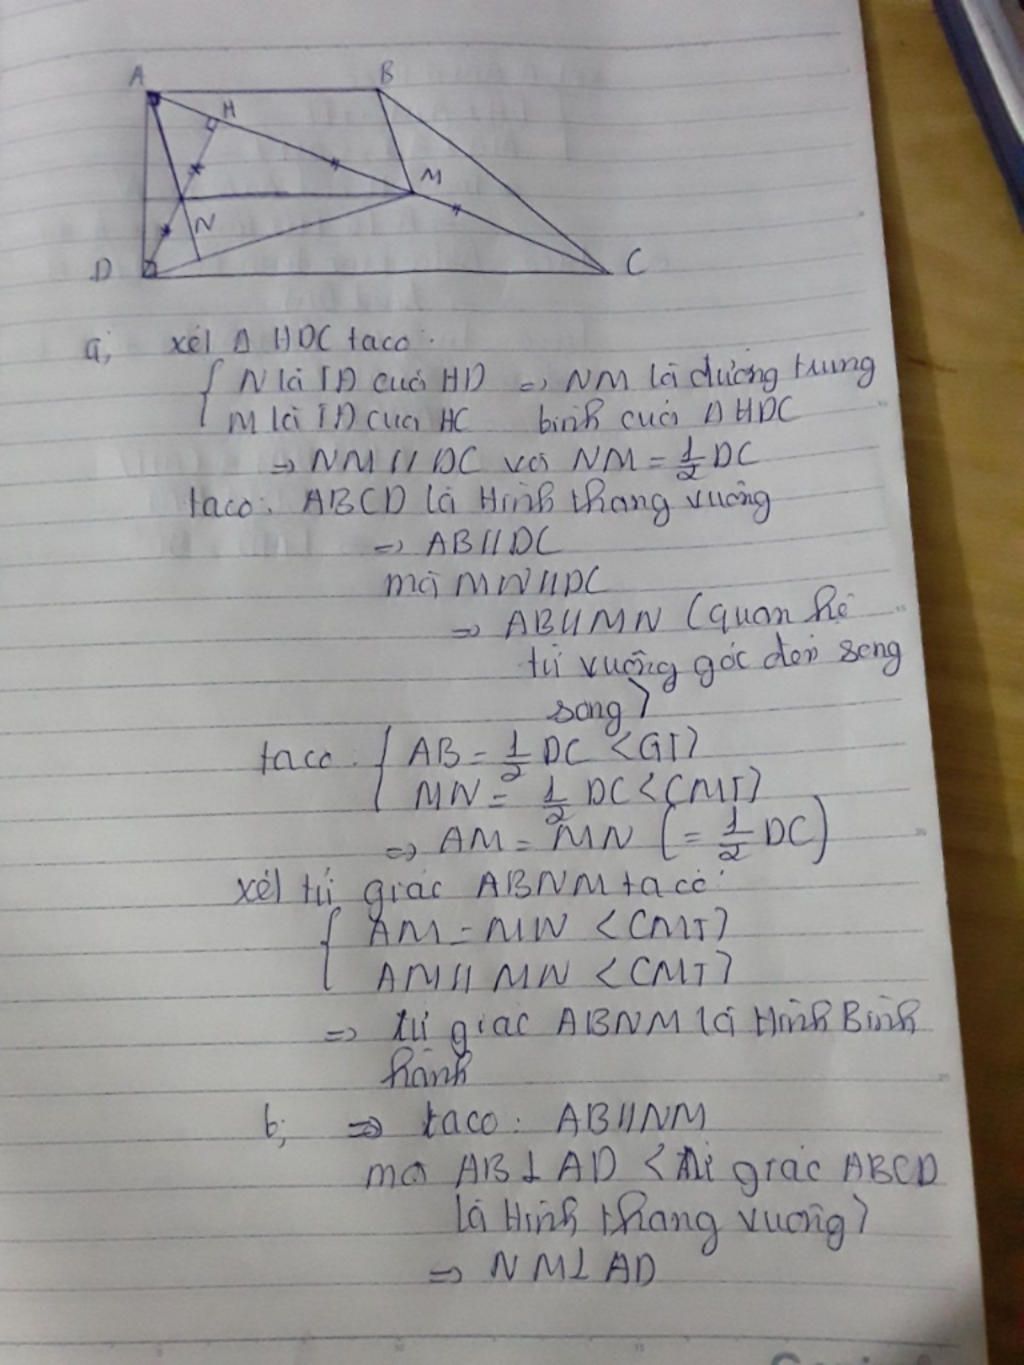 A B
H
M
N
D C
a, xét Δ HDC taco:
{ N là TĐ của HD => NM là đường trung
M là TĐ của HC bình của Δ HDC
=> NM // DC và NM = 1/2 DC
taco: ABCD là Hình thang vuông
=> AB // DC
mà MN // DC
=> AB // MN (quan hệ
từ vuông góc đến song
song)
taco: { AB = 1/2 DC <GT>
MN = 1/2 DC <CMT>
=> AM = MN (= 1/2 DC)
xét tứ giác ABNM taco:
{ AM = MN <CMT>
AM // MN <CMT>
=> tứ giác ABNM là Hình Bình
hành
b, => taco: AB // NM
mà AB ⊥ AD <tứ giác ABCD
là Hình thang vuông>
=> NM ⊥ AD